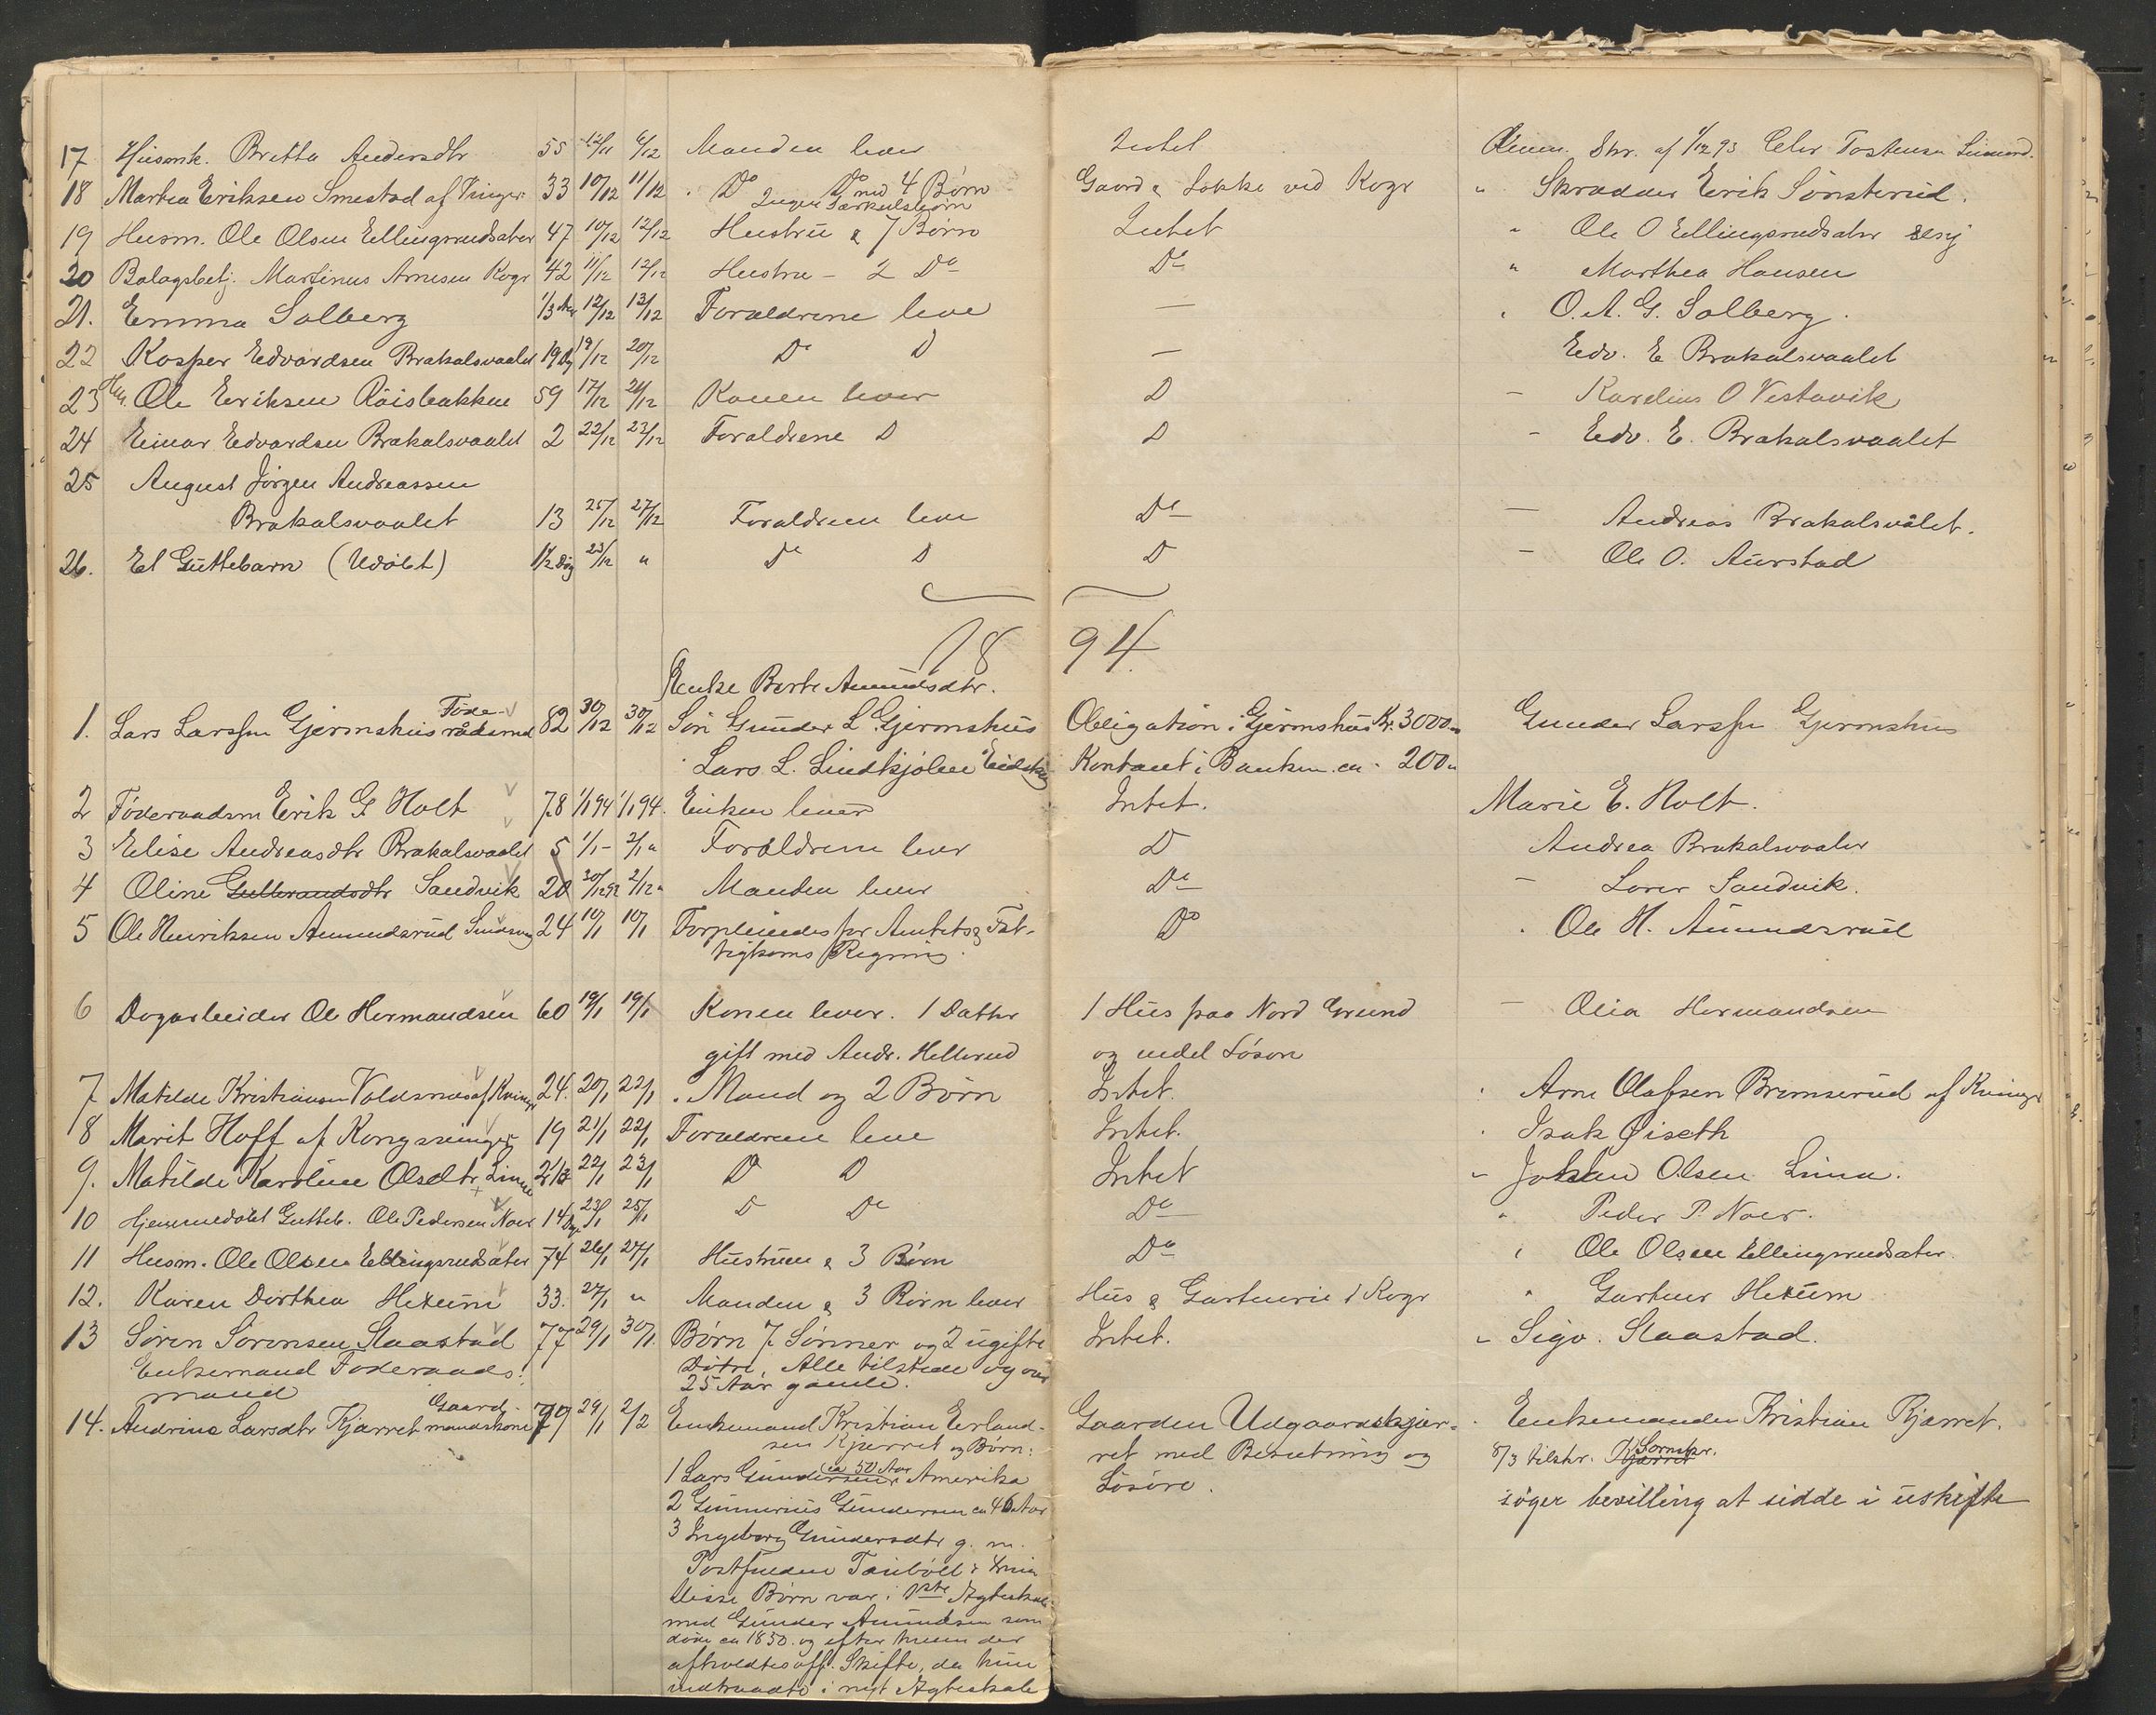 17 Husmk. Britta Andersdtr 55 12/11 6/12 Manden lever Intet Anm. Skr. af 1/12 93 Tostensen
18 Marthea Eriksen Smestad af Vinger 33 10/12 11/12 Do Do med 4 Børn Gaard & Løkke ved Kogr " Skrædder Erik Sønsterud.
Ingen Særkulsbørn
19 Husm. Ole Olsen Ellingsrudsæter 47 10/12 12/12 Hustru & 7 Børn Intet " Ole O Ellingsrudsæter
20 Bolagsbetj. Martinus Arnesen Kogr 42 11/12 12/12 Hustru - 2 Do Do " Marthea Hansen
21. Emma Solberg 1/3 12/12 13/12 Forældrene leve — " O. A. G. Solberg.
22 Kasper Edvardsen Brakalsvaalet 19 Dg 19/12 20/12 Do D — Edv. E Brakalsvaalet
23 Hm. Ole Eriksen Röisbakken 59 17/12 21/12 Konen lever D - Karelius O Vestavik
24 Einar Edvardsen Brakalsvaalet 2 22/12 23/12 Forældrene D D - Edv. E. Brakalsvaalet
25 August Jörgen Andreassen
Brakalsvaalet 13 25/12 27/12 Forældrene leve Do — Andreas Brakalsvålet.
26. Et Guttebarn (Udöbt) 1½ Dög 23/12 " Do D D - Ole O. Aurstad
18 94.
Enke Berte Amundsdtr.
1. Lars Larssen Gjermshus Føde-
rådsmd 82 30/12 30/12 Søn Gunder L. Gjermshus Obligation i Gjermshus Kr. 3000.- Gunder Larssen Gjermshus
Lars L. Lindkjølen Eidskog Kontant i Banken ca - 200 "
2 Føderaadsm Erik G Holt 78 1/1 94 1/1 94. Enken lever Intet. Marie E. Holt.
3 Elise Andreasdtr Brakalsvaalet 5 1/1 - 2/1 " Forældrene lever D Andrea Brakalsvaalet
4 Oline Gulbrandsdtr Sandvik 20 30/12 92 2/12 " Manden lever Do - Lorer Sandvik.
5 Ole Henriksen Amundsrud 24 10/1 10/1 Forpleiedes for Amtets & Fat- Do " Ole H. Amundsrud
tigkoms Regning.
6 Dagarbeider Ole Hermandsen 60 19/1 19/1 Konen lever. 1 Datter 1 Hus paa Nord Grund - Olia Hermandsen
gift med Andr. Hellerud og endel Løsøre
7 Matilde Kristiansen Voldsnes af Kvinger 24. 20/1 22/1 . Mand og 2 Børn Intet. " Arne Olafsen Bremserud af Kvinger
8 Marit Hoff af Kongsvinger 19 21/1 22/1 Forældrene leve Intet. " Isak Øiseth
9. Matilde Karoline Olsdtr Linna 2½ 22/1 23/1 Do D Intet " Johan Olsen Linna.
10 Hjemmedøbt Gutteb. Ole Pedersen Noer 14 Dge 23/1 25/1 D Do Do " Peder P. Noer.
11 Husm. Ole Olsen Ellingsrudsæter 74 26/1 27/1 Hustruen & 3 Børn Do " Ole Olsen Ellingsrudsæter.
12. Karen Dorthea Hexum 33. 27/1 " Manden & 3 Børn lever Hus & Gartneri i Kogr " Gartner Hexum
13 Søren Sørensen Slaastad 77 29/1 30/1. Børn 7 Sønner og 2 ugifte Intet. " Sigv. Slaastad.
Enkemand Føderaads- Døtre. Alle tilstede og over
mand 25 Aar gamle.
14. Andrine Larsdtr Kjærret Gaard-
mandskone 79 29/1 2/2 Enkemand Kristian Erland- Gaarden Udgaardskjær- " Enkemanden Kristian Kjærret.
sen Kjærret og Børn: ret med Besætning og 8/3 tilskr. Kjærret Sornskr.
1 Lars Gundersen ca 50 Aar Amerika Løsøre. søger bevilling at sidde i uskifte
2 Gunnerius Gundersen ca 46 Aar
3 Ingeborg Gundersdtr g. m.
Disse Børn var i 1ste Ægteskab
med Gunder Amundsen som
døde ca 1850. og efter hvem der
afholdtes off. Skifte, da hun
indtraadte i nyt Ægteskab